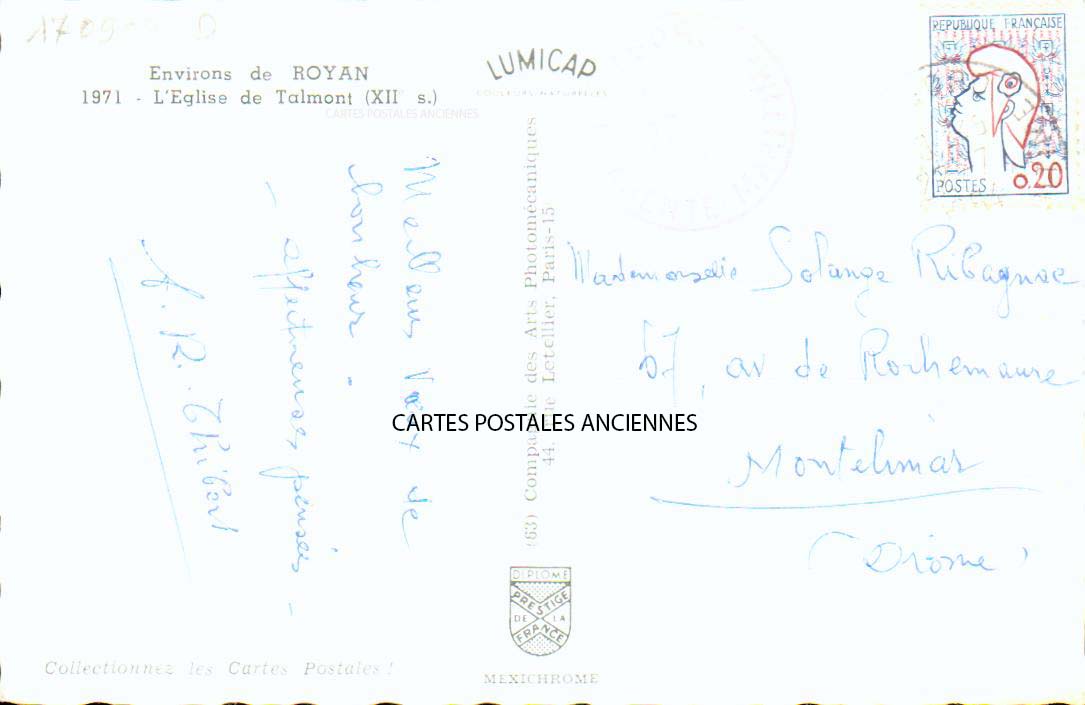 Environs de ROYAN
1971 - L'Eglise de Talmont (XIIe s.)
CARTES POSTALES ANCIENNES
LUMICAP
COULEURS NATURELLES
REPUBLIQUE FRANÇAISE
POSTES
0.20
Meilleurs Vœux de
bonheur -
- affectueuses pensées -
R. Thibert
(63) Compagnie des Arts Photomécaniques
44, rue Letellier, Paris-15e
Mademoiselle Solange Ribagnac
57, av de Rochemaure
Montélimar
(Drôme)
CARTES POSTALES ANCIENNES
DIPLOME
PRESTIGE
DE LA
FRANCE
MEXICHROME
Collectionnez les Cartes Postales !